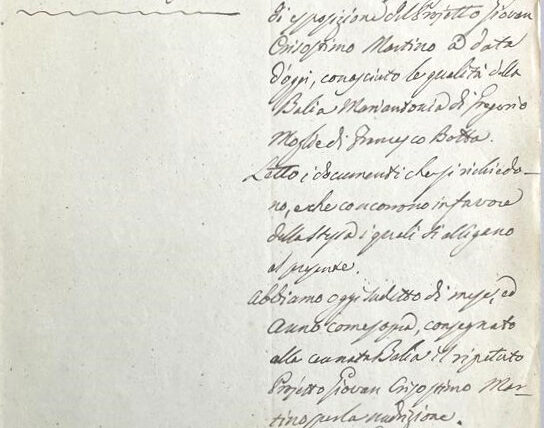 di esposizione del Projetto Giovan
Crisostimo Martino a data
d'oggi, conosciuto le qualità della
Balia Mariantonia di Gregorio
Moglie di Francesco Botta.
Letto i documenti che si richiedo-
no, e che concorrono in favore
della stessa i quali si alligano
al presente.
Abbiamo oggi suddetto dì mese, ed
Anno come sopra, consegnato
alla cennata Balia il ripetuto
Projetto Giovan Crisostimo Mar-
tino per la nudrizione.